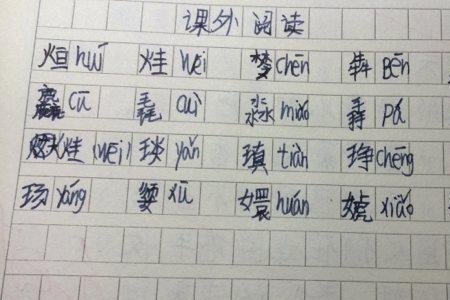 课外阅读
烜 huǐ 烓 wēi 梦 chēn 犇 Bēn
麤 cū 毳 cuì 淼 miǎo 掱 pá
烓 (wēi) 琰 yǎn 瑱 tiàn 琤 chēng
玚 yáng 嬃 xū 嬛 huán 婋 xiāo